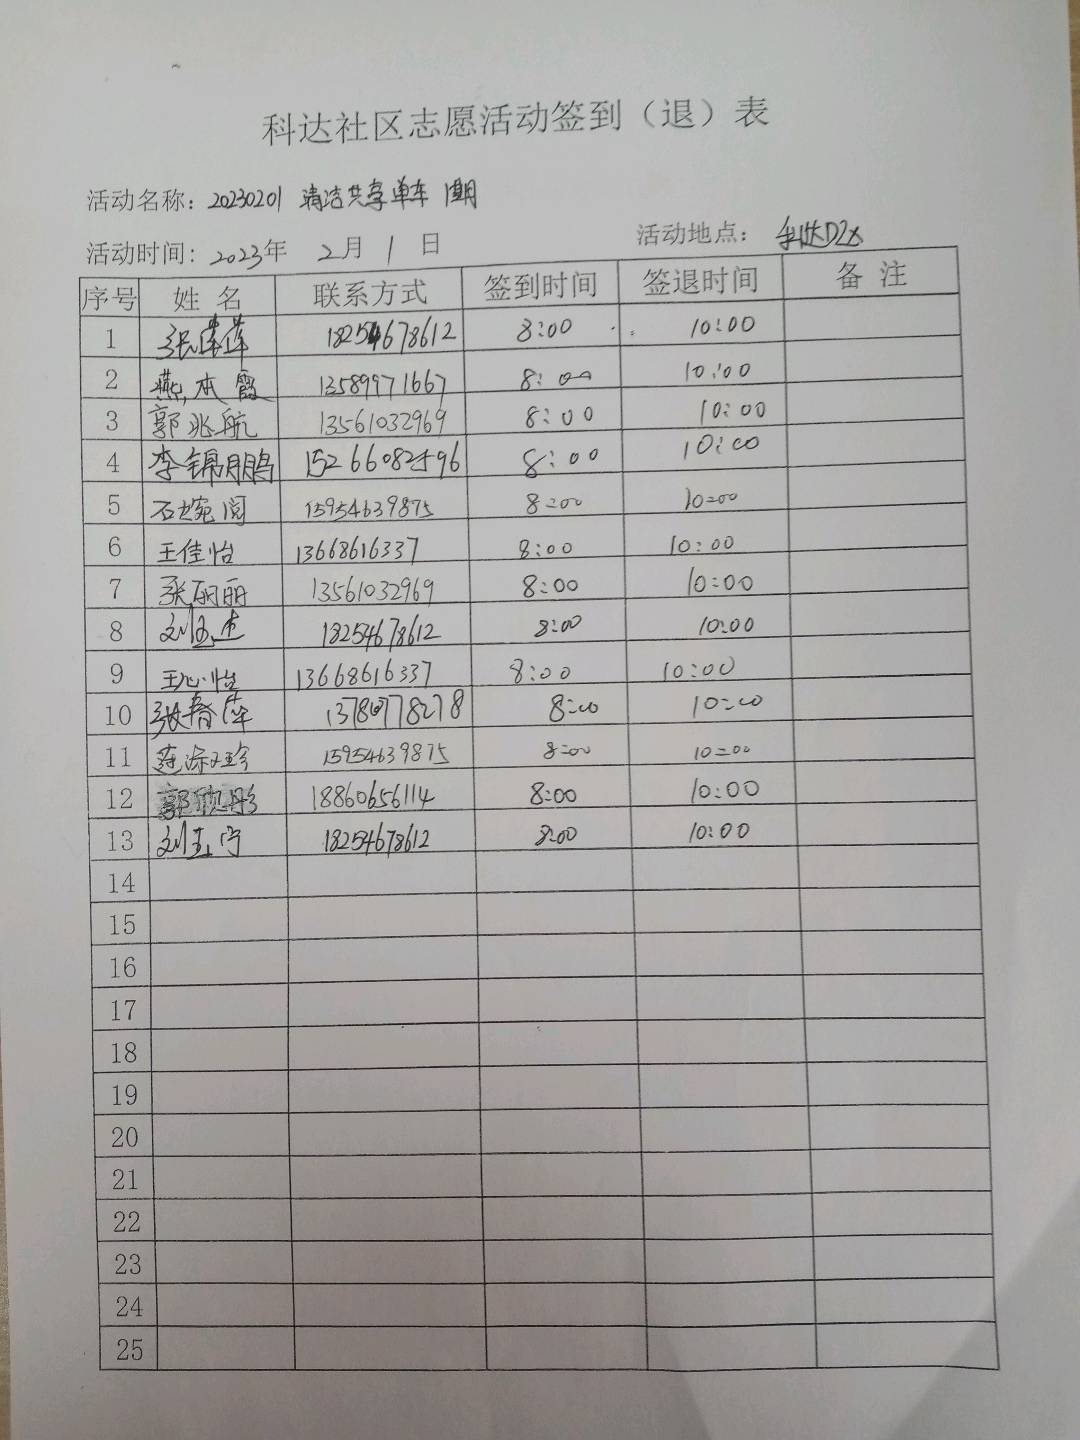 科达社区志愿活动签到（退）表
活动名称：20230201 清洁共享单车 1期
活动时间：2023年 2月 1日 活动地点：科达D区
序号 姓名 联系方式 签到时间 签退时间 备注
1 张莲莲 18254678612 8:00 10:00
2 燕本霞 13589971667 8:00 10:00
3 郭兆航 13561032969 8:00 10:00
4 李锦鹏 15266082596 8:00 10:00
5 石婉阅 15954639875 8:00 10:00
6 王佳怡 13668616337 8:00 10:00
7 张丽丽 13561032969 8:00 10:00
8 刘玉杰 18254678612 8:00 10:00
9 王心怡 13668616337 8:00 10:00
10 张春萍 8:00 10:00
11 15954639875 8:00 10:00
12 郭彤 18860656114 8:00 10:00
13 刘玉宁 18254678612 8:00 10:00
14
15
16
17
18
19
20
21
22
23
24
25